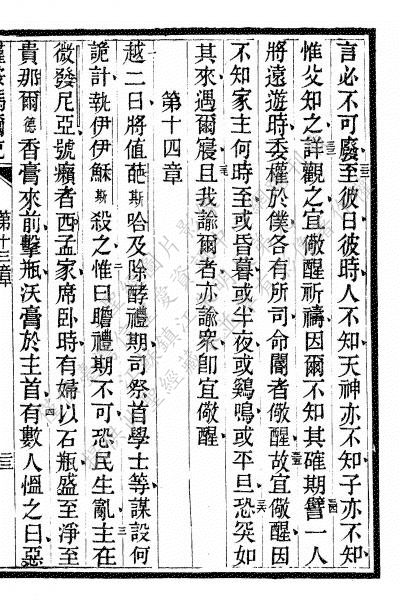 言必不可廢至彼日彼時人不知天神亦不知子亦不知
惟父知之詳觀之宜儆醒祈禱因爾不知其確期譬一人
將遠遊時委權於僕各有所司命閽者儆醒故宜儆醒因
不知家主何時至或昏暮或半夜或鷄鳴或平旦恐突如
其來遇爾寢且我諭爾者亦諭衆卽宜儆醒
第十四章
越二日將值葩斯哈及除酵禮期司祭首學士等謀設何
詭計執伊伊穌斯殺之惟曰瞻禮期不可恐民生亂主在
微發尼亞號癩者西孟家席卧時有婦以石瓶盛至淨至
貴那爾德香膏來前擊瓶沃膏於主首有數人慍之曰惡
第十三章